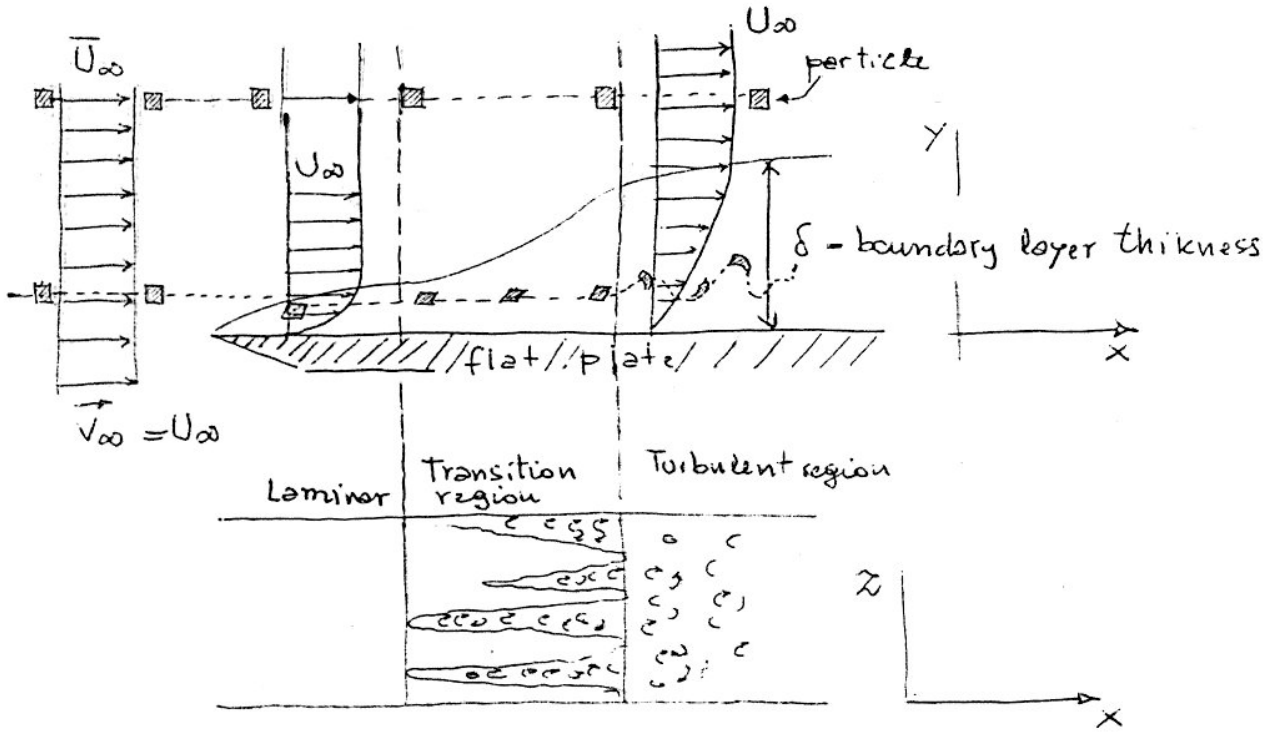 U∞
U̅∞
particle
U∞
Y
δ - boundary layer thikness
flat plate
X
V⃗∞ = U∞
Laminar
Transition
region
Turbulent region
Z
X